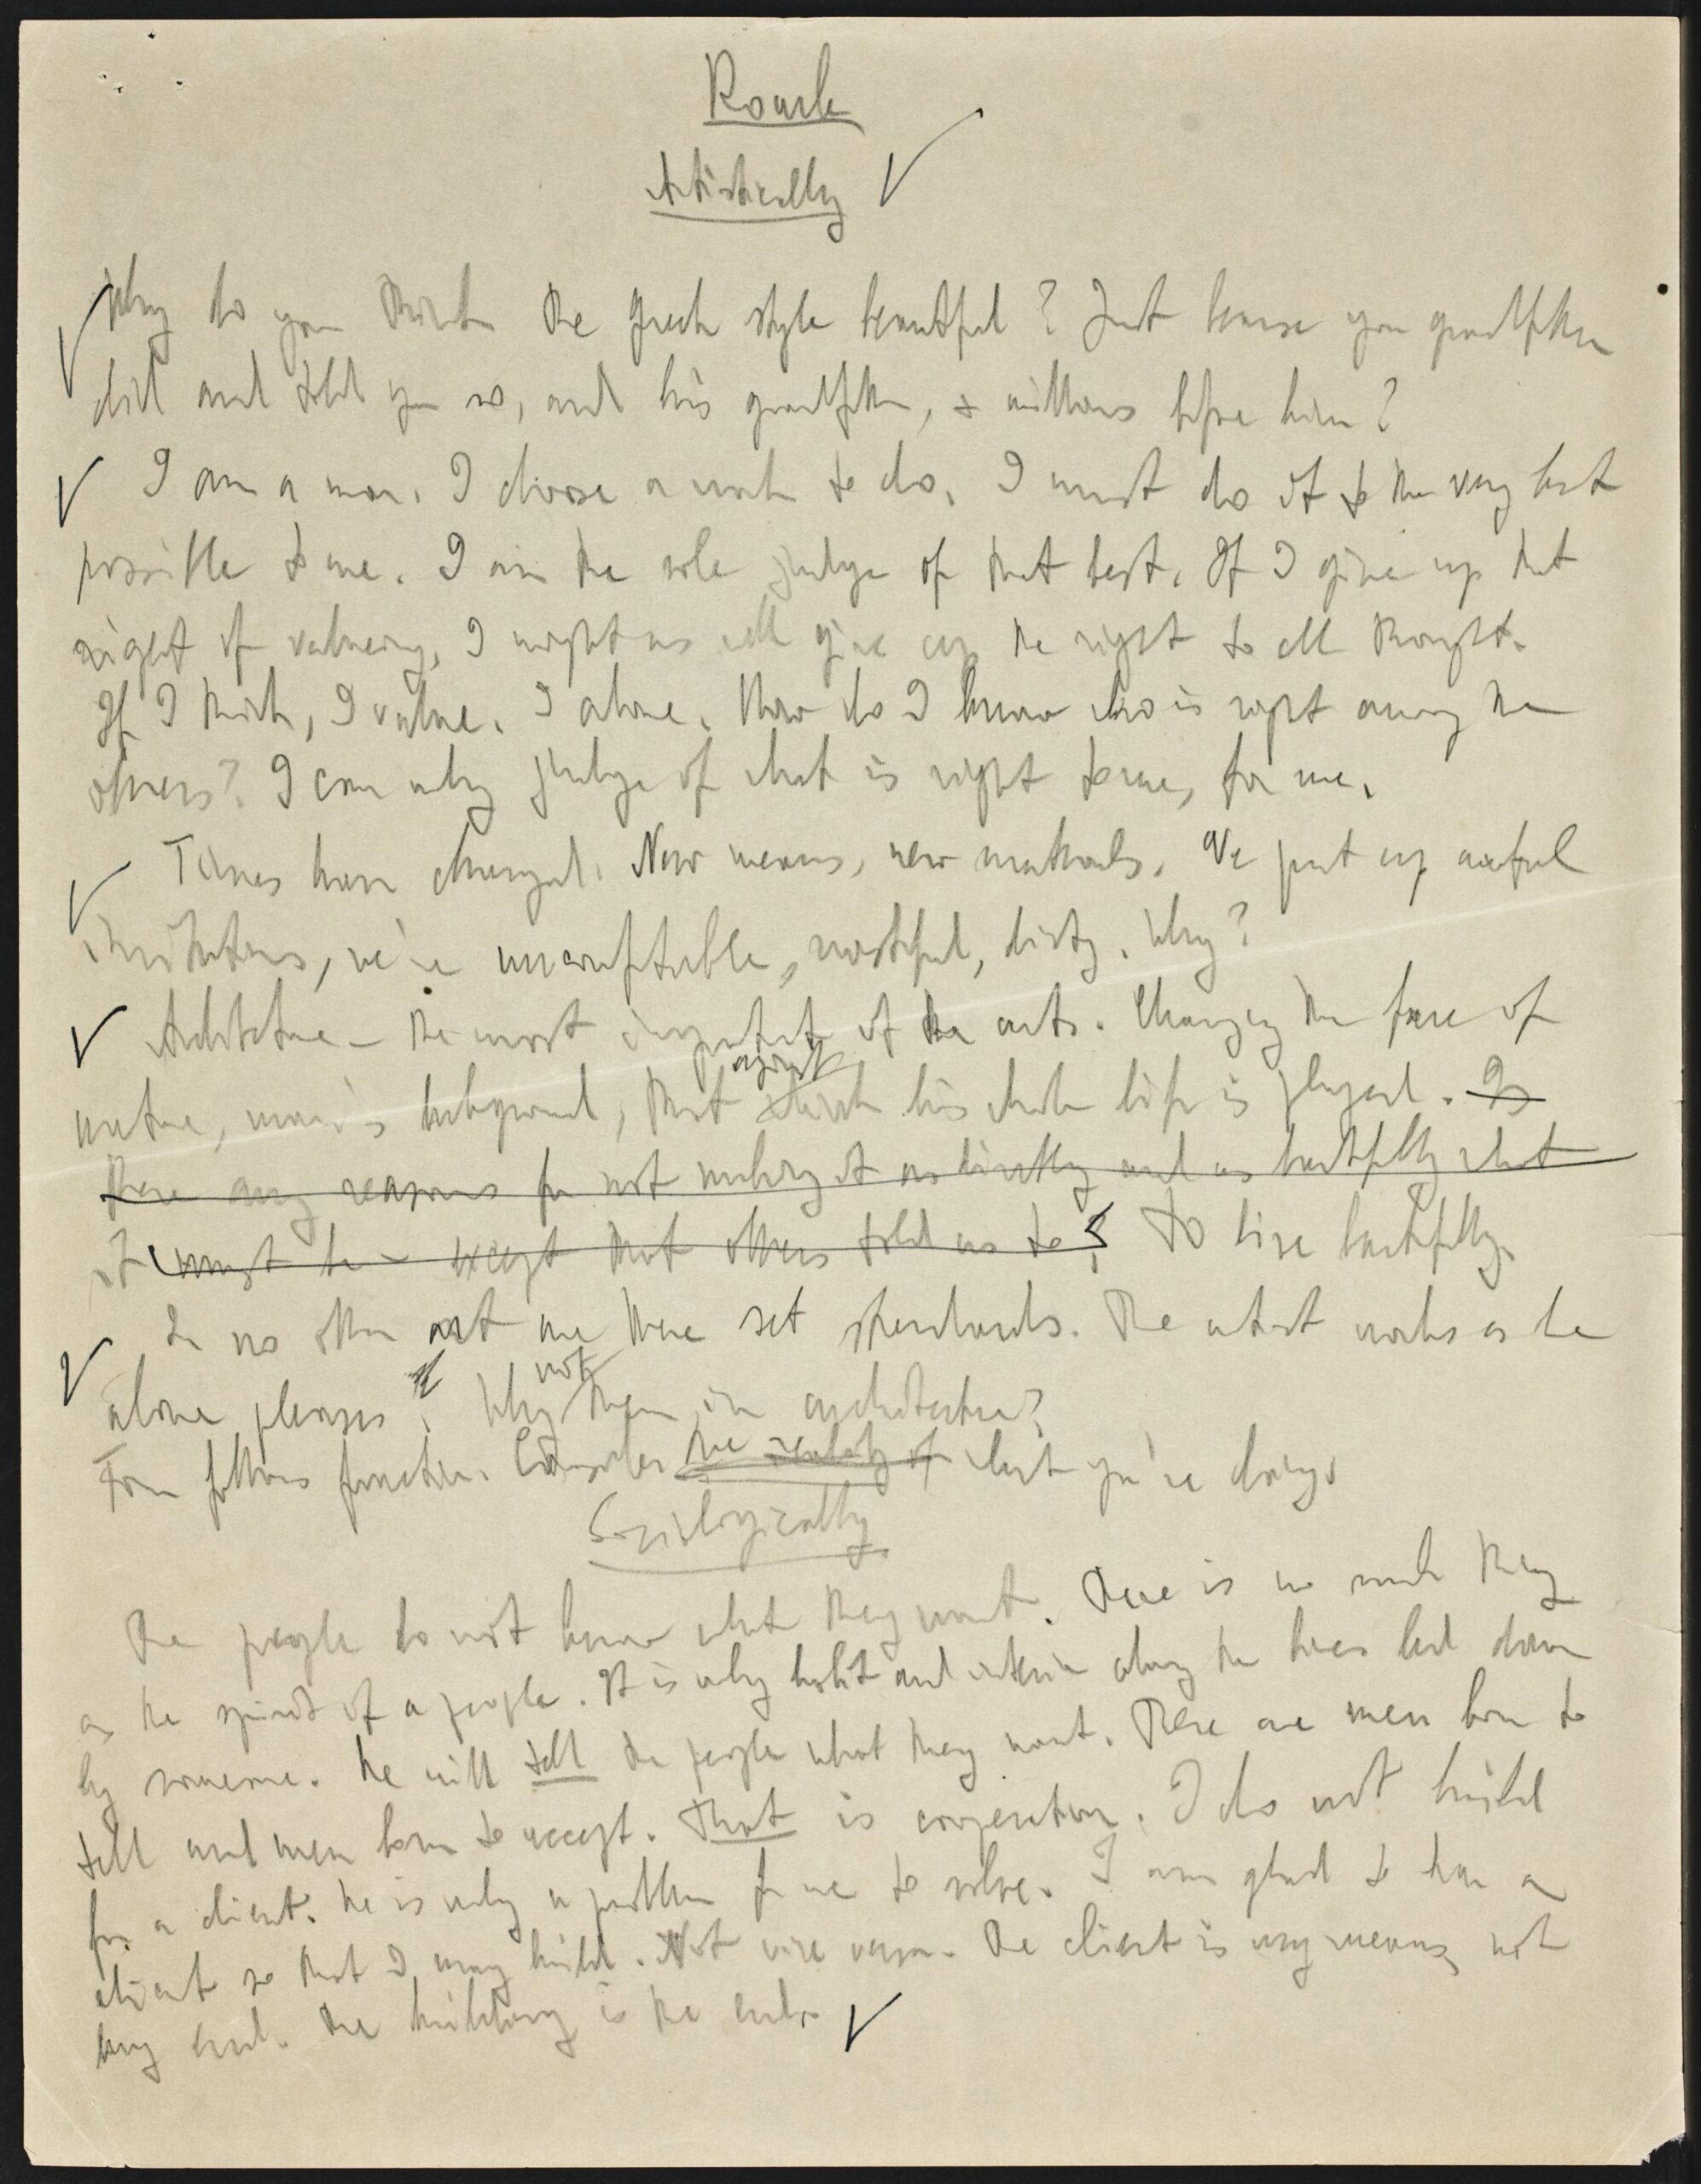 Roark
Artistically
Why do you think the Greek style beautiful? Just because your grandfather
did and told you so, and his grandfather, & millions before him?
I am a man. I choose a work to do. I must do it to the very best
possible to me. I am the sole judge of that best. If I give up that
right of valueing, I might as well give up the right to all thought.
If I think, I value. I alone. How do I know who is right among the
others? I can only judge of what is right to me, for me.
Times have changed. New means, new materials. We put up awful
imitations, we're uncomfortable, wasteful, dirty. Why?
Architecture – the most important of the arts. Changing the face of
against
nature, man's background, that which his whole life is played. Is
there any reasons for not making it as directly and as beautifully what
it must be – except that others told us to? To live beautifully.
In no other art are there set standards. The artist works as he
not
alone pleases. Why then in architecture?
Form follows function. Consider the reality of what you're doing.
Sociologically
The people do not know what they want. There is no such thing
as the spirit of a people. It is only habit and inertia along the lines laid down
by someone. He will tell the people what they want. There are men born to
tell and men born to accept. That is cooperation. I do not build
for a client. He is only a problem for me to solve. I am glad to have a
client so that I may build. Not vice versa. The client is my means, not
my end. The building is the end.